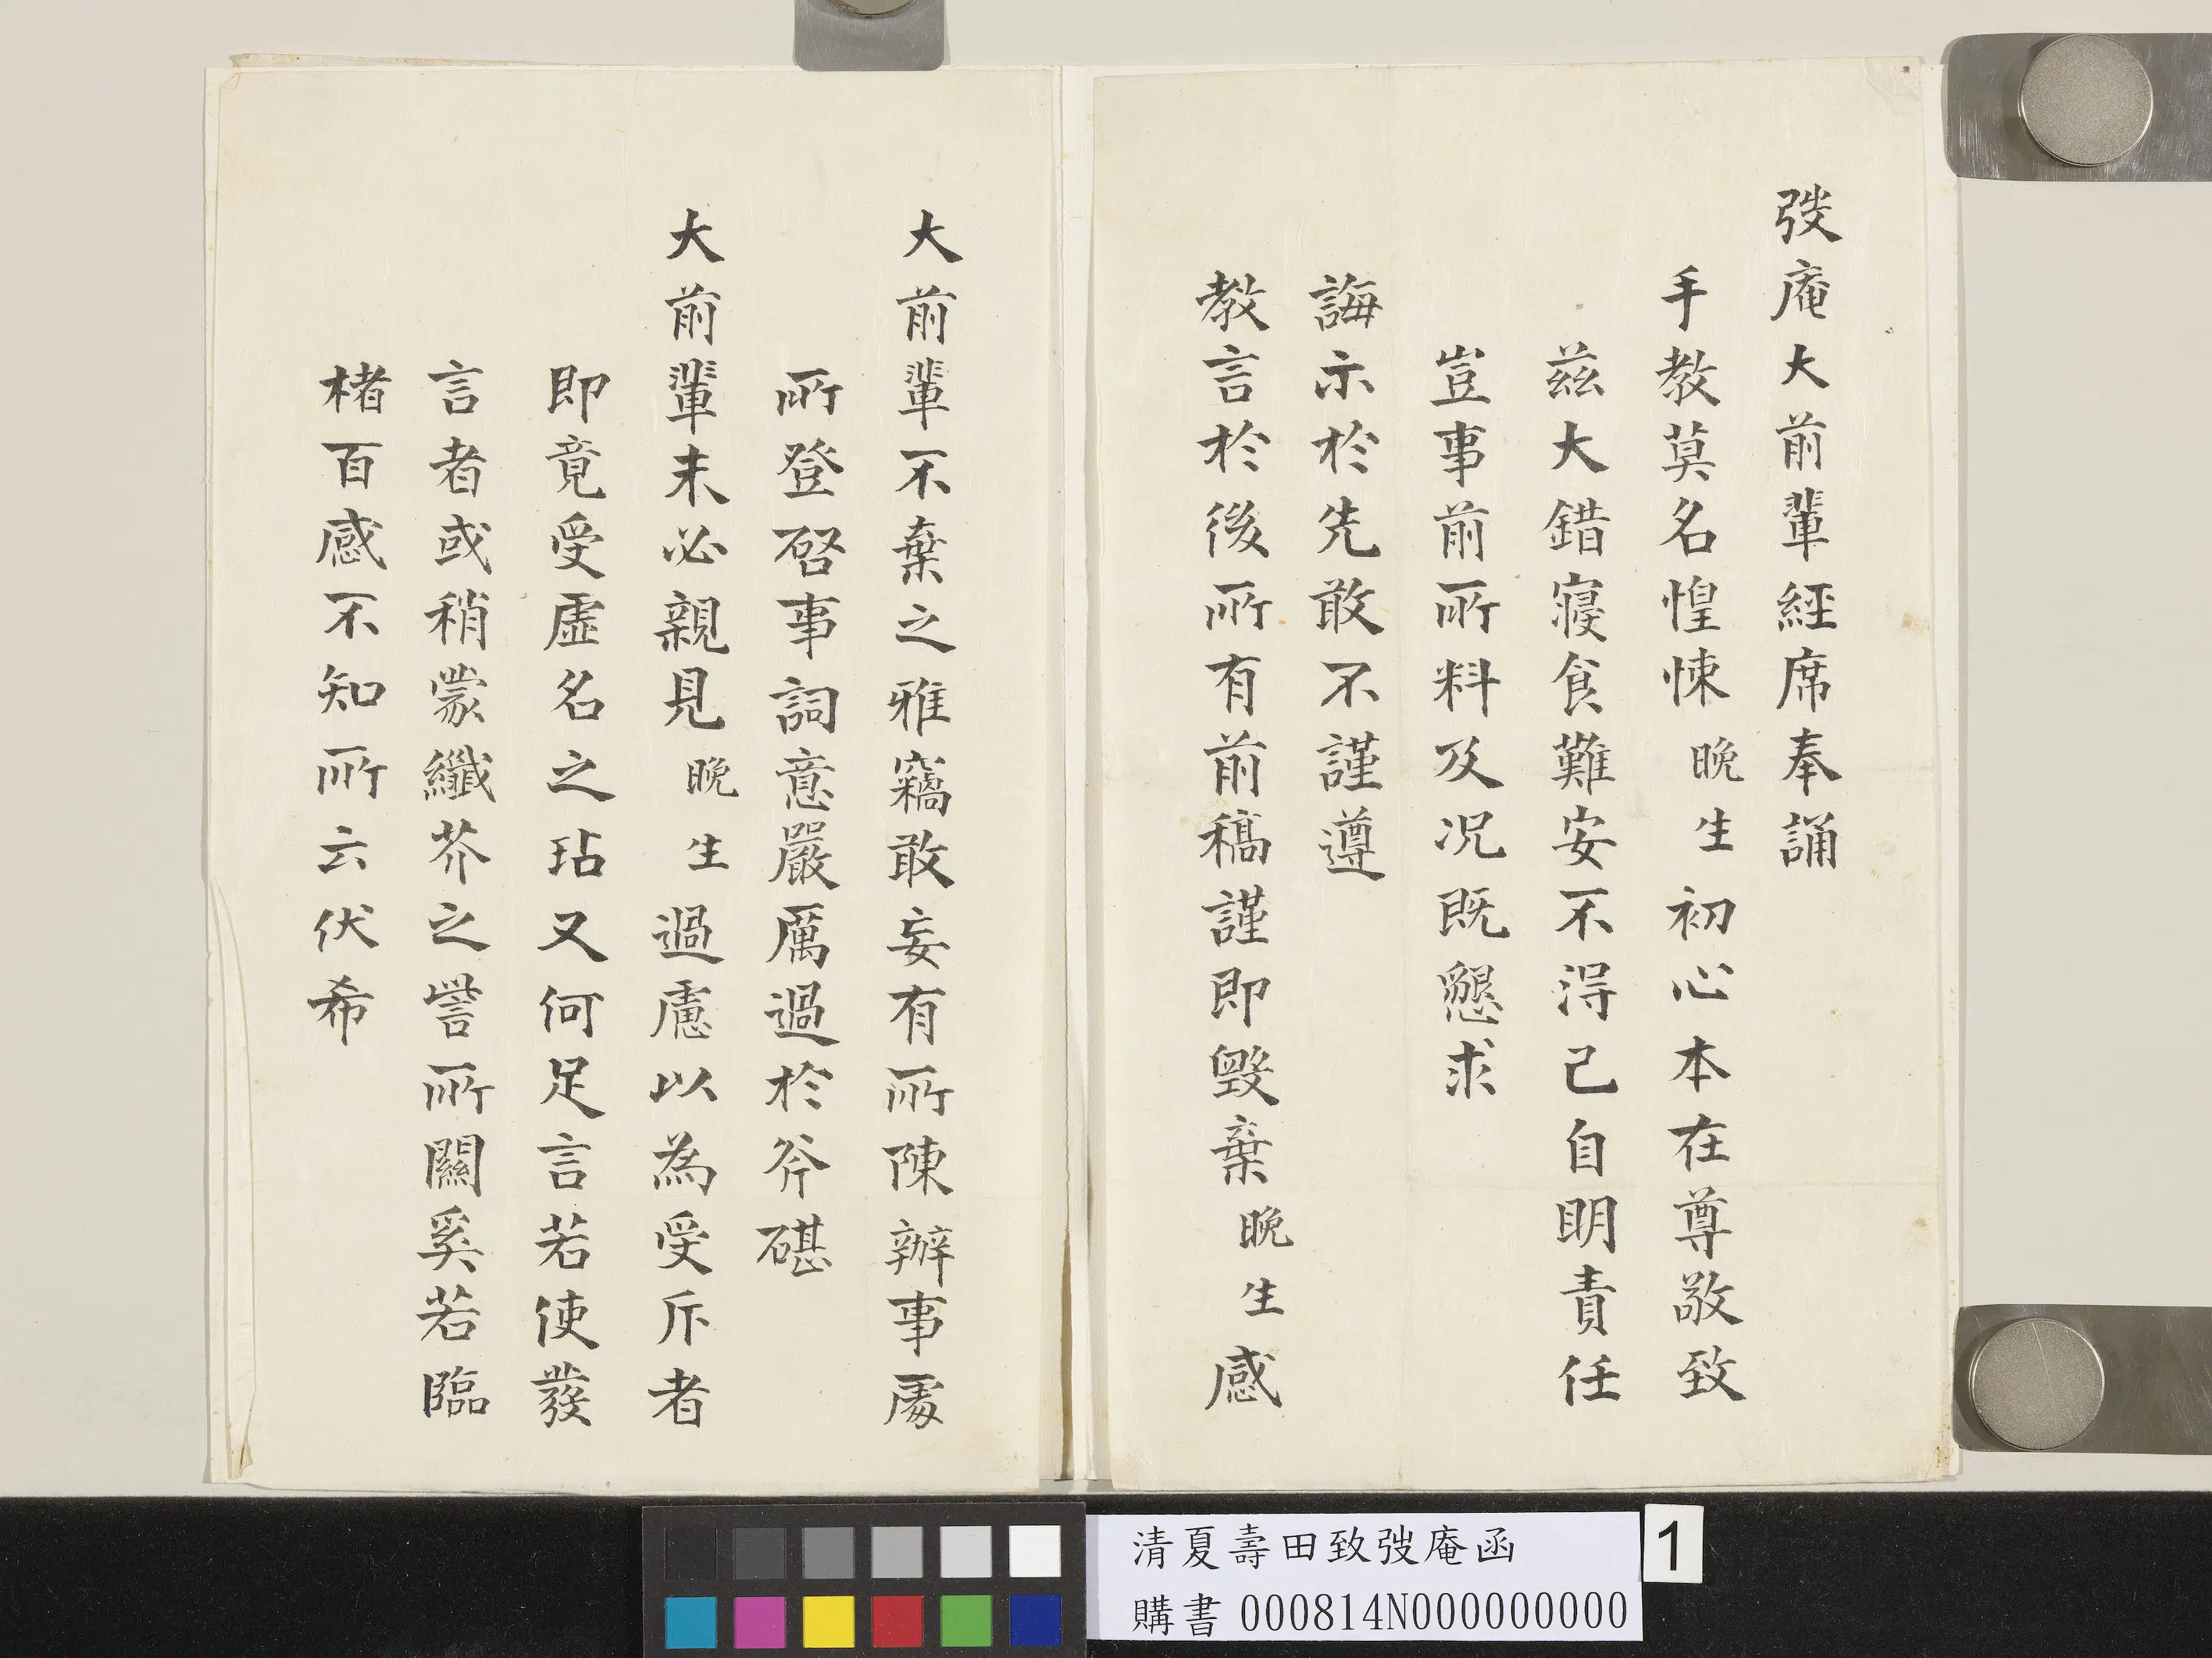 弢庵大前輩經席奉誦
手教莫名惶悚晚生初心本在尊敬致
茲大錯寢食難安不得已自明責任
豈事前所料及況既懇求
誨示於先敢不謹遵
教言於後所有前稿謹即毀棄晚生感
大前輩不棄之雅竊敢妄有所陳辦事處
所登啓事詞意嚴厲過於斧碪
大前輩未必親見晚生過慮以為受斥者
即竟受虛名之玷又何足言若使發
言者或稍蒙纖芥之訾所關奚若臨
楮百感不知所云伏希
清夏壽田致弢庵函
購書 000814N000000000
1